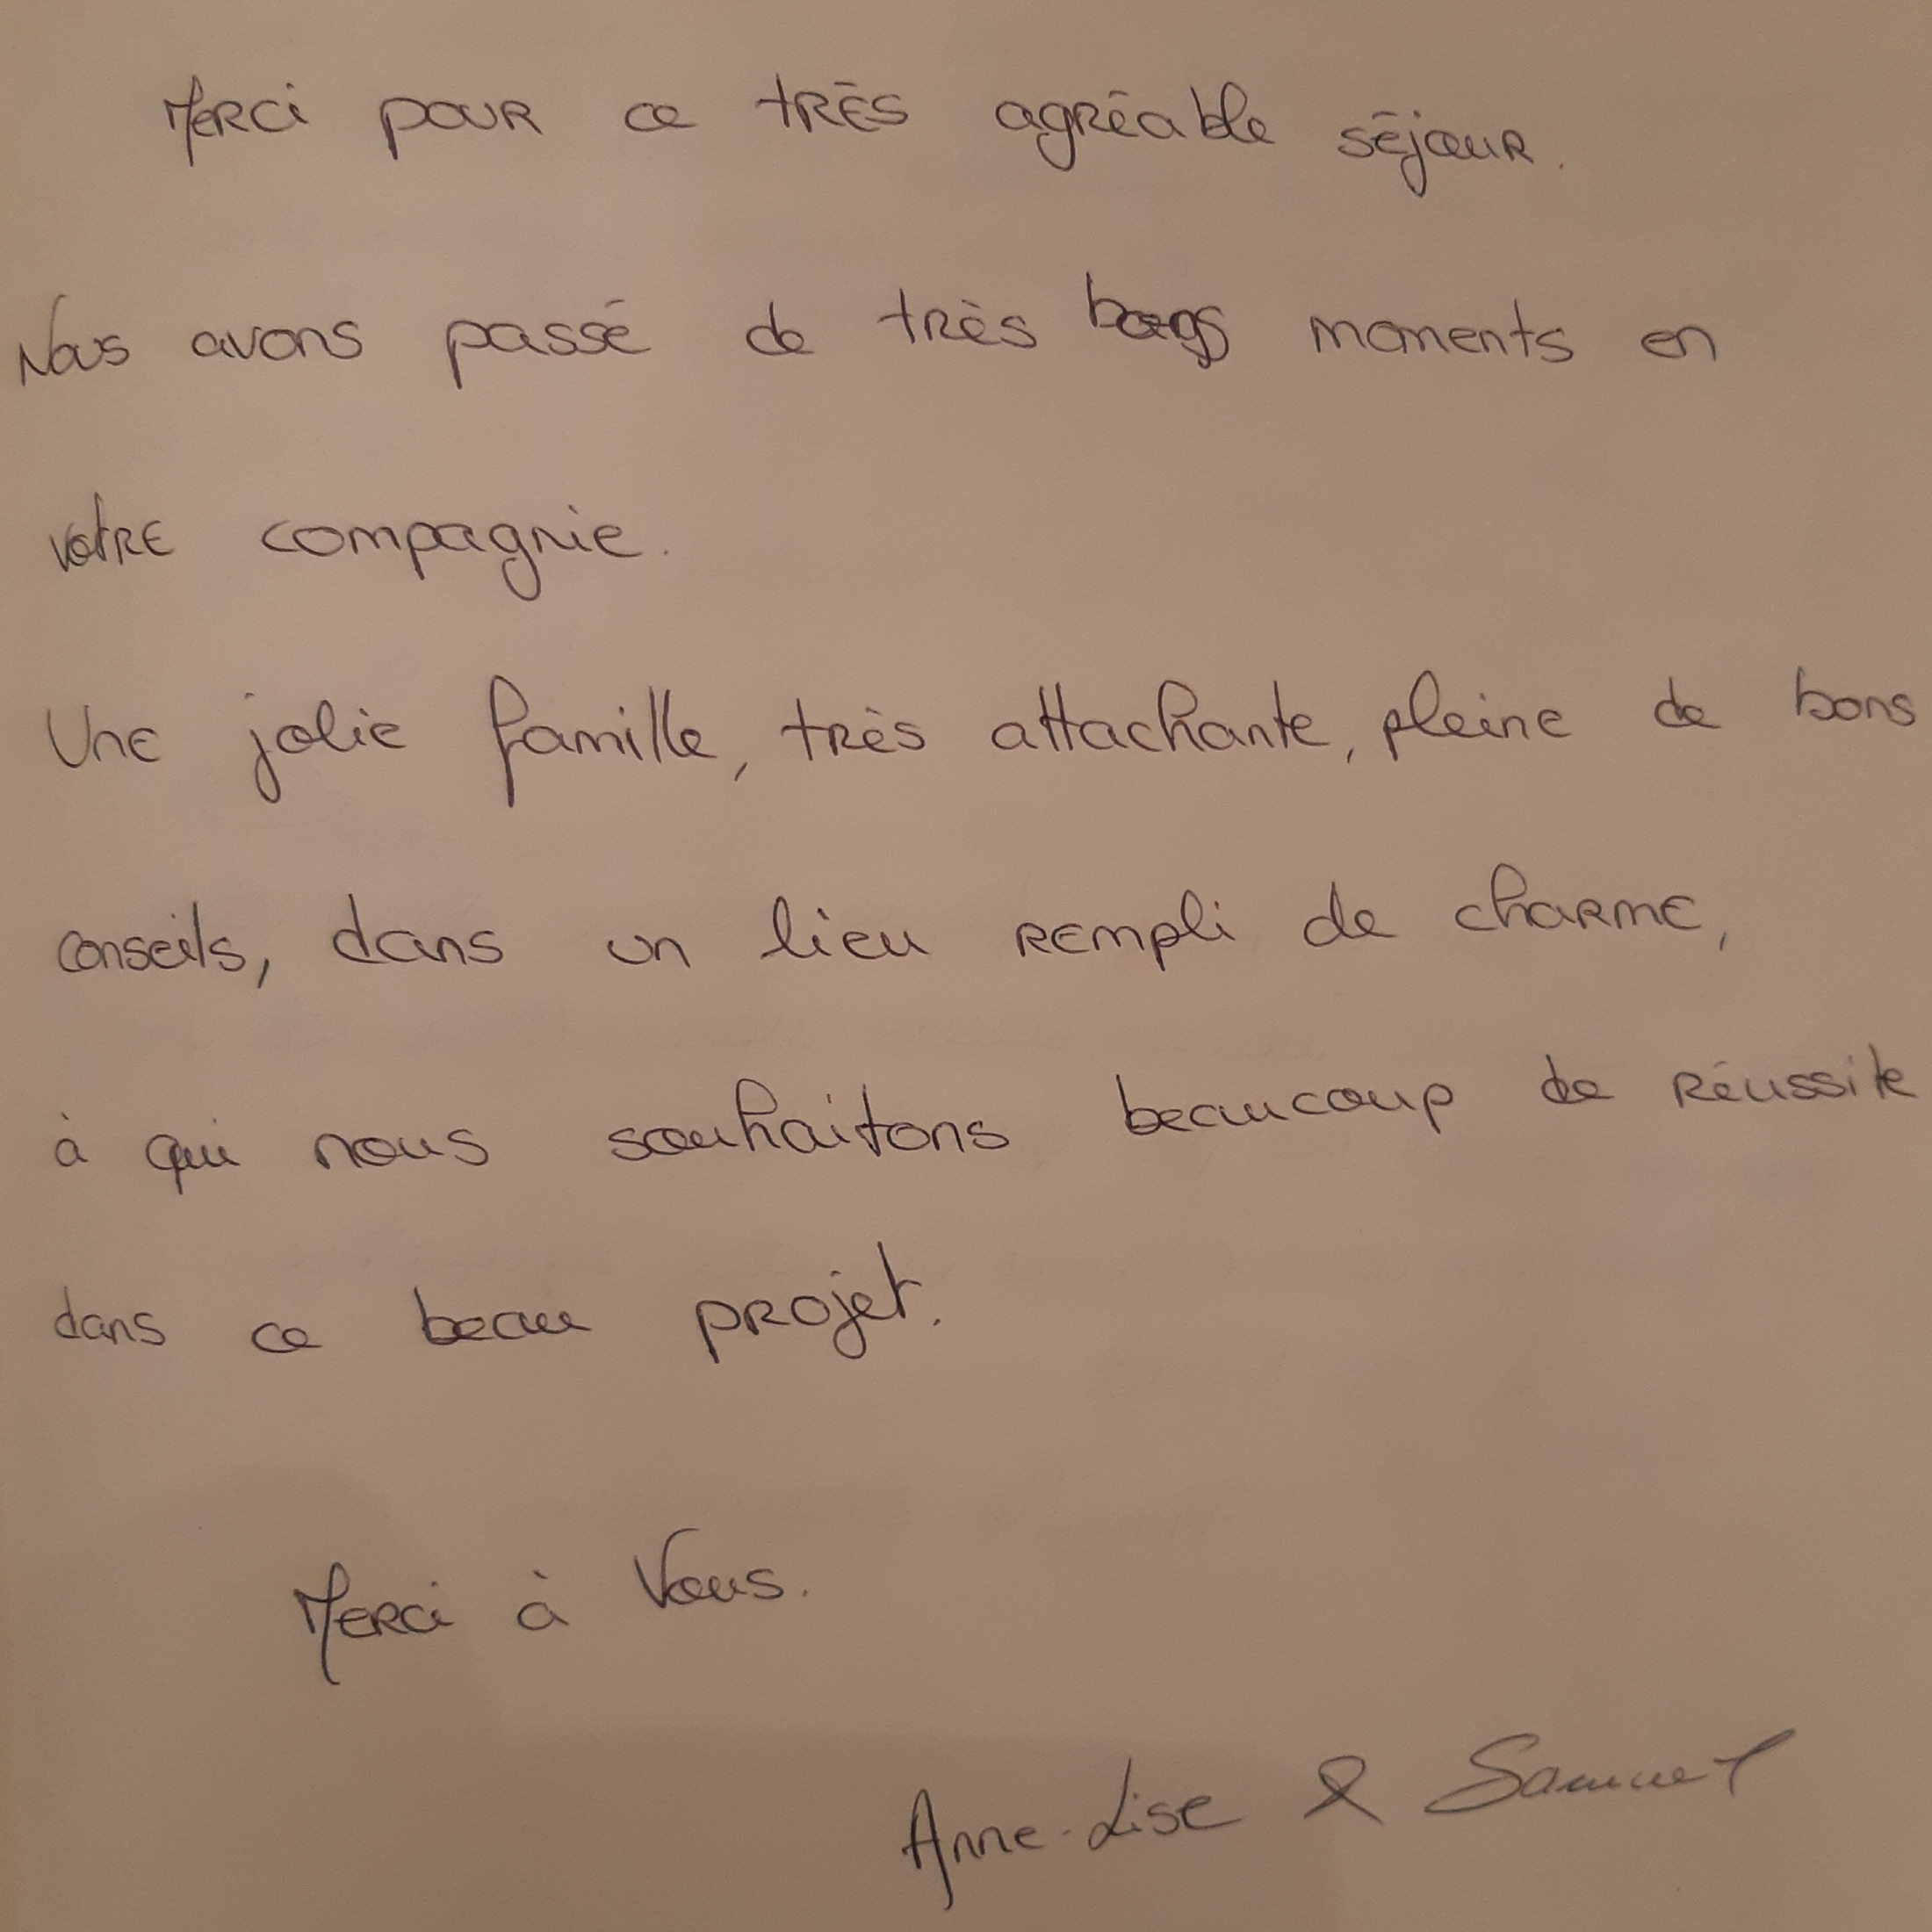 Merci pour ce très agréable séjour.
Nous avons passé de très bons moments en
votre compagnie.
Une jolie famille, très attachante, pleine de bons
conseils, dans un lieu rempli de charme,
à qui nous souhaitons beaucoup de réussite
dans ce beau projet.
Merci à Vous.
Anne-Lise & Samuel